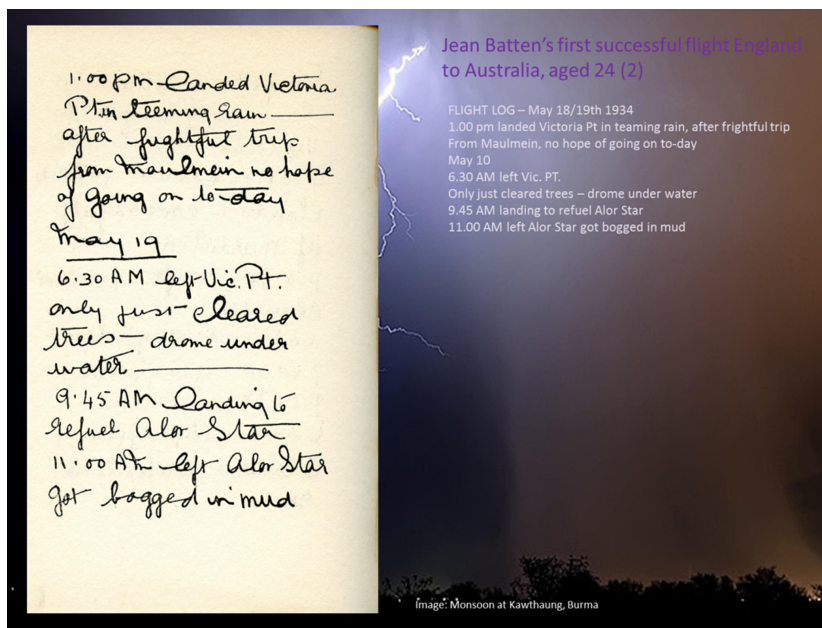 1.00 pm landed Victoria
Pt in teeming rain —
after frightful trip
from Maulmein no hope
of going on to-day
May 19
6.30 AM left Vic. Pt.
only just cleared
trees — drome under
water —
9.45 AM landing to
refuel Alor Star
11.00 AM left Alor Star
got bogged in mud
Jean Batten's first successful flight England
to Australia, aged 24 (2)
FLIGHT LOG – May 18/19th 1934
1.00 pm landed Victoria Pt in teaming rain, after frightful trip
From Maulmein, no hope of going on to-day
May 10
6.30 AM left Vic. PT.
Only just cleared trees – drome under water
9.45 AM landing to refuel Alor Star
11.00 AM left Alor Star got bogged in mud
Image: Monsoon at Kawthaung, Burma